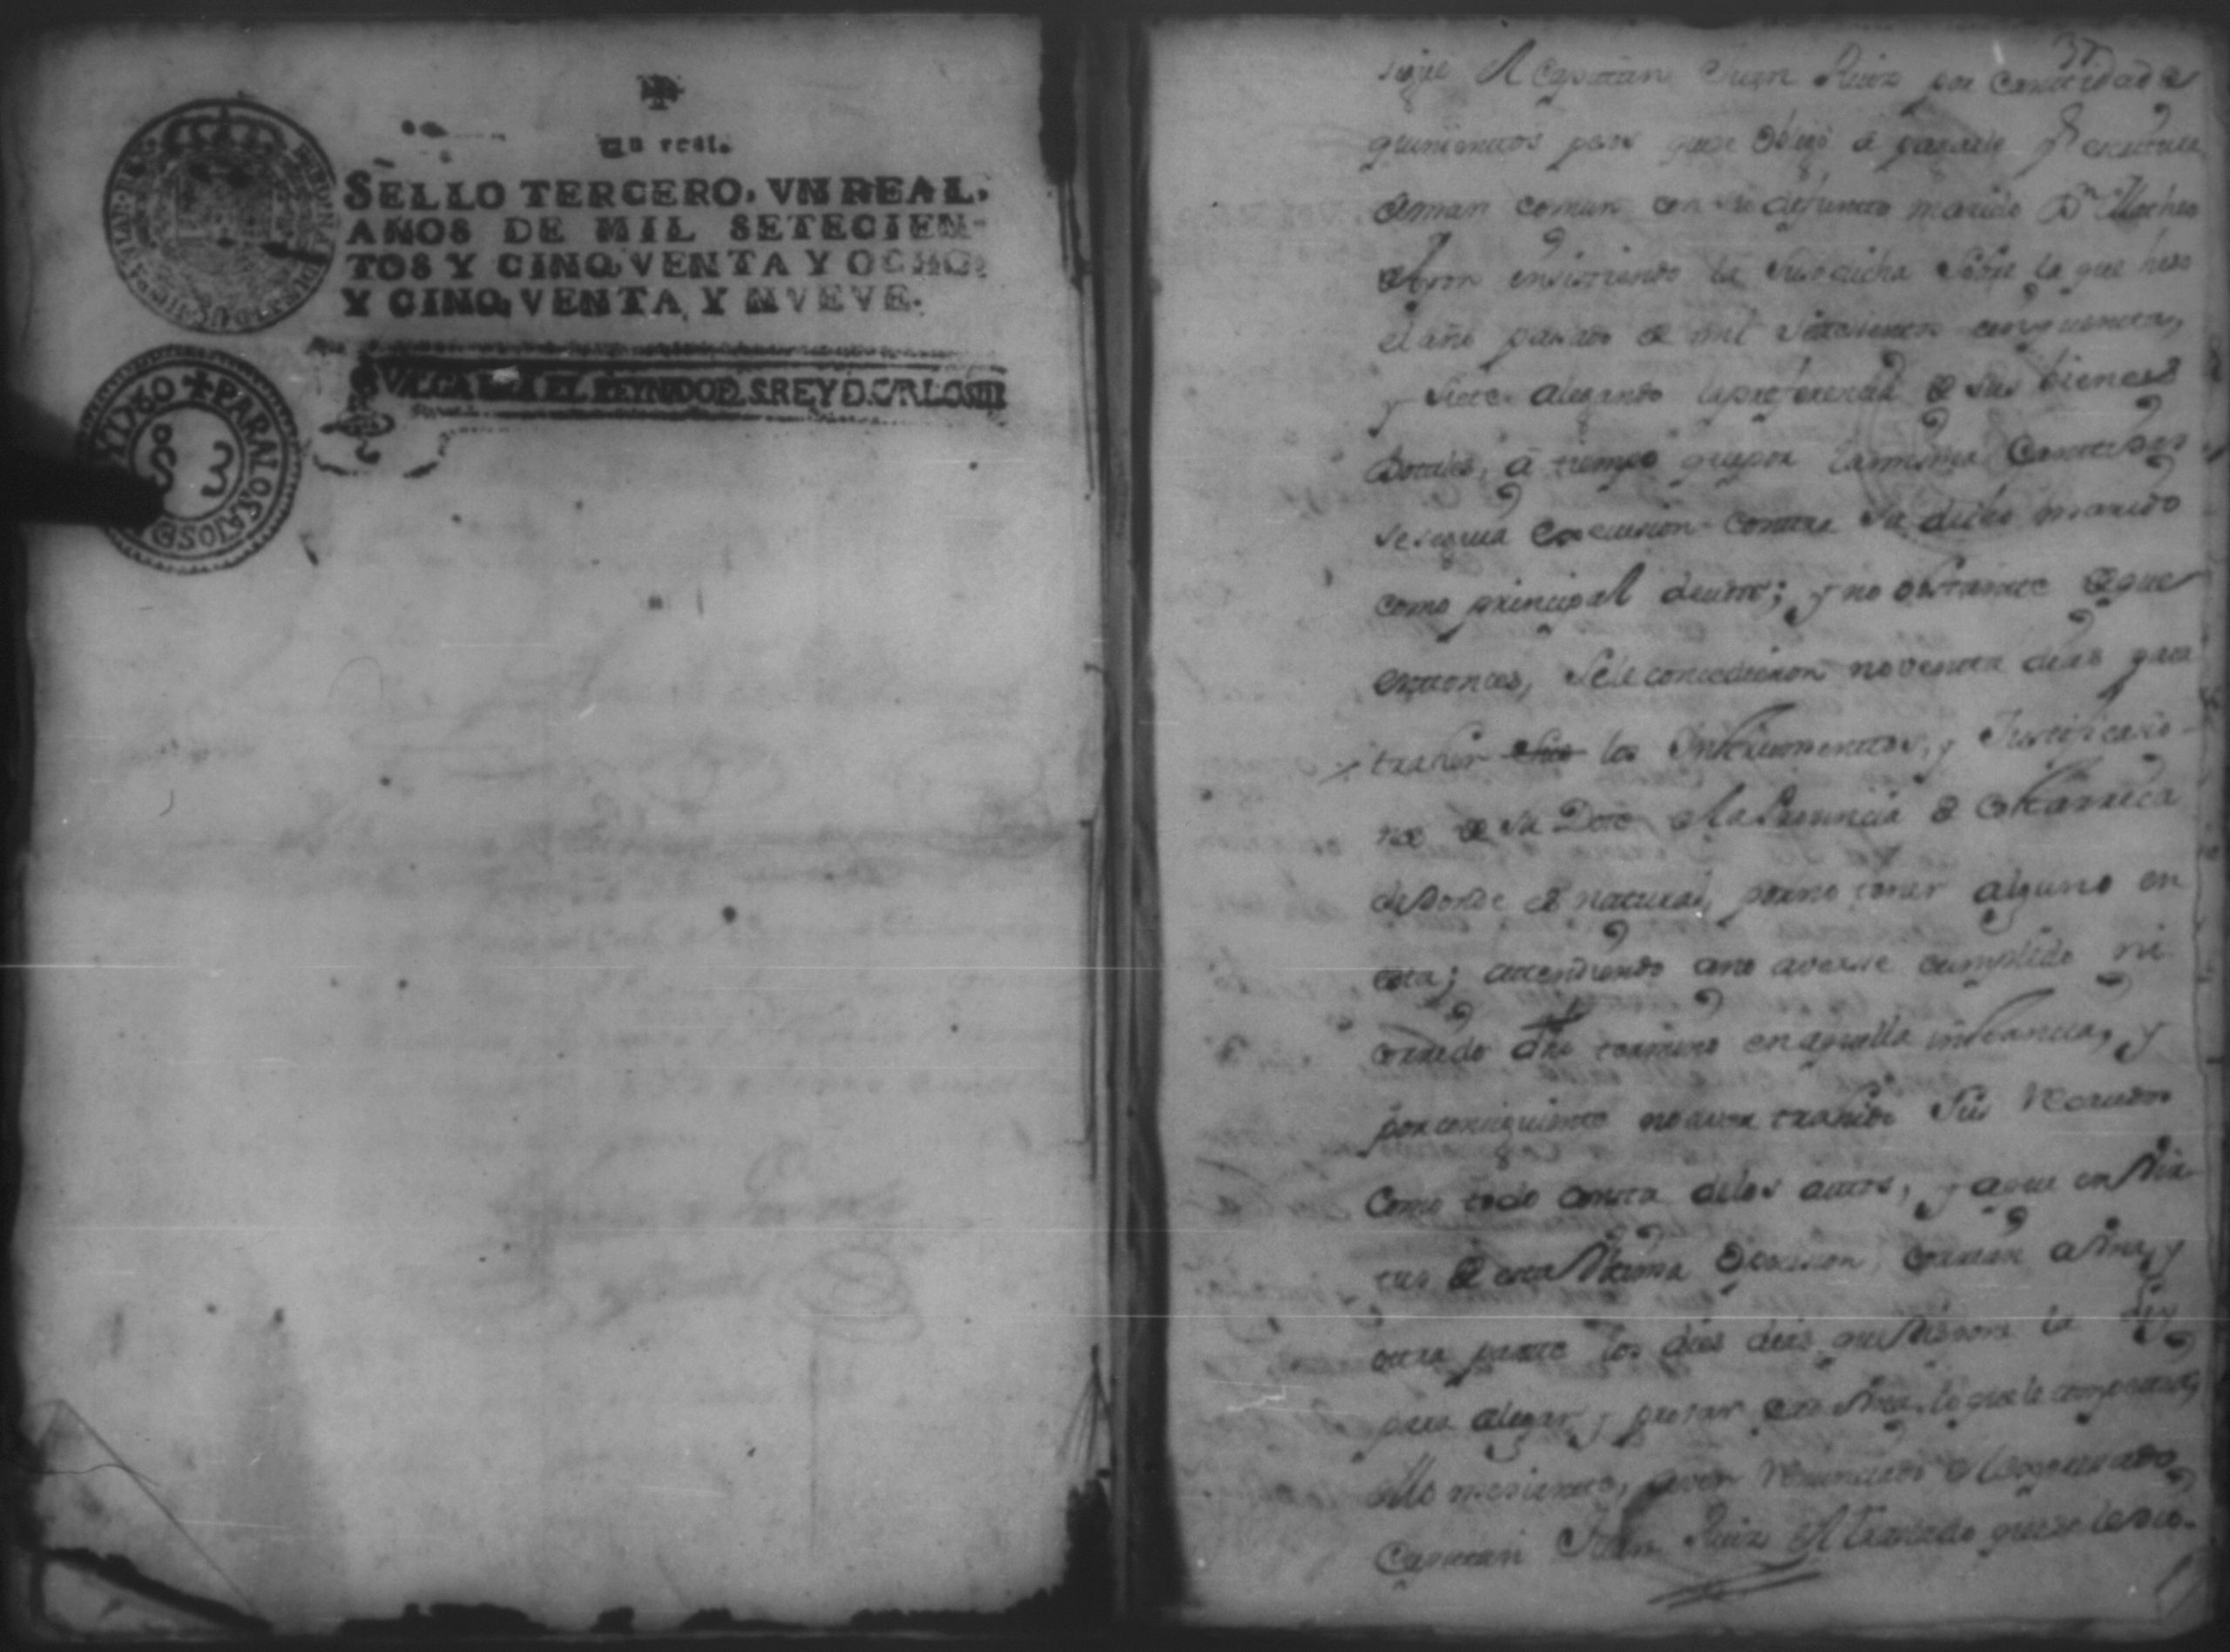 Un real.
SELLO TERCERO, VN REAL,
AÑOS DE MIL SETECIEN-
TOS Y CINQVENTA Y OCHO,
Y CINQVENTA, Y NVEVE.
VALGA PARA EL REYNADO DEL S. REY D. CARLOS III
Y 1760 PARA LOS AÑOS D
37
sigue el Capitan Juan Ruiz por cantidad de
quinientos pesos que se obligó á pagarle pr. escritura
de man comun con su defuncto marido Dn. Matheo
insistiendo la susodicha sobre lo que hiso
el año pasado de mil setecientos cinquenta,
y siete alegando la preferencia de sus bienes
Dotales, á tiempo que por la misma Cantidad
se seguia execusion contra su dicho marido
como principal deudor; y no obstante de que
entonces, se le concedieron noventa dias para
traher los Instrumentos, y Justificacio-
nes de su Dote de la Provincia de
de donde es natural, por no tener alguno en
esta; attendiendo a no averse cumplido ni
corrido dho termino en aquella instancia, y
por consiguiente no aver trahido sus Recaudos
Como todo consta de los autos, y a que en vir-
tud de esta ultima execusion, corrian a una, y
otra parte los dies dias que dispone la Ley
para alegar, y provar en ella lo que le compete,
Capitan Juan Ruiz el traslado que se le dio.